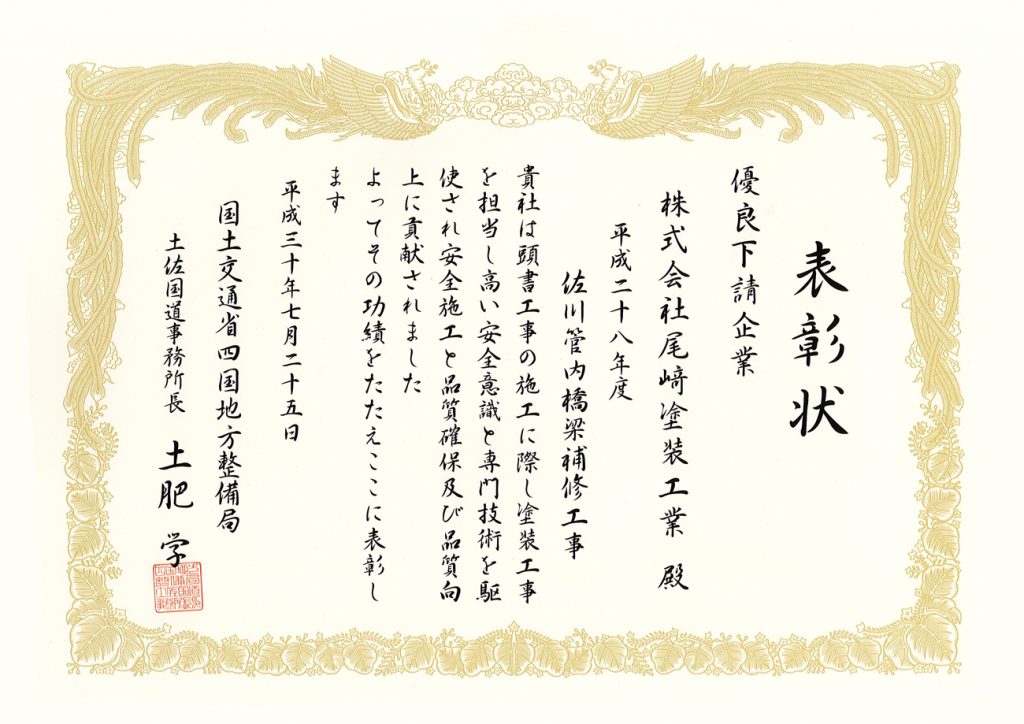 表彰状
優良下請企業
株式会社尾﨑塗装工業 殿
平成二十八年度
佐川管内橋梁補修工事
貴社は頭書工事の施工に際し塗装工事
を担当し高い安全意識と専門技術を駆
使され安全施工と品質確保及び品質向
上に貢献されました
よってその功績をたたえここに表彰し
ます
平成三十年七月二十五日
国土交通省四国地方整備局
土佐国道事務所長 土肥 学